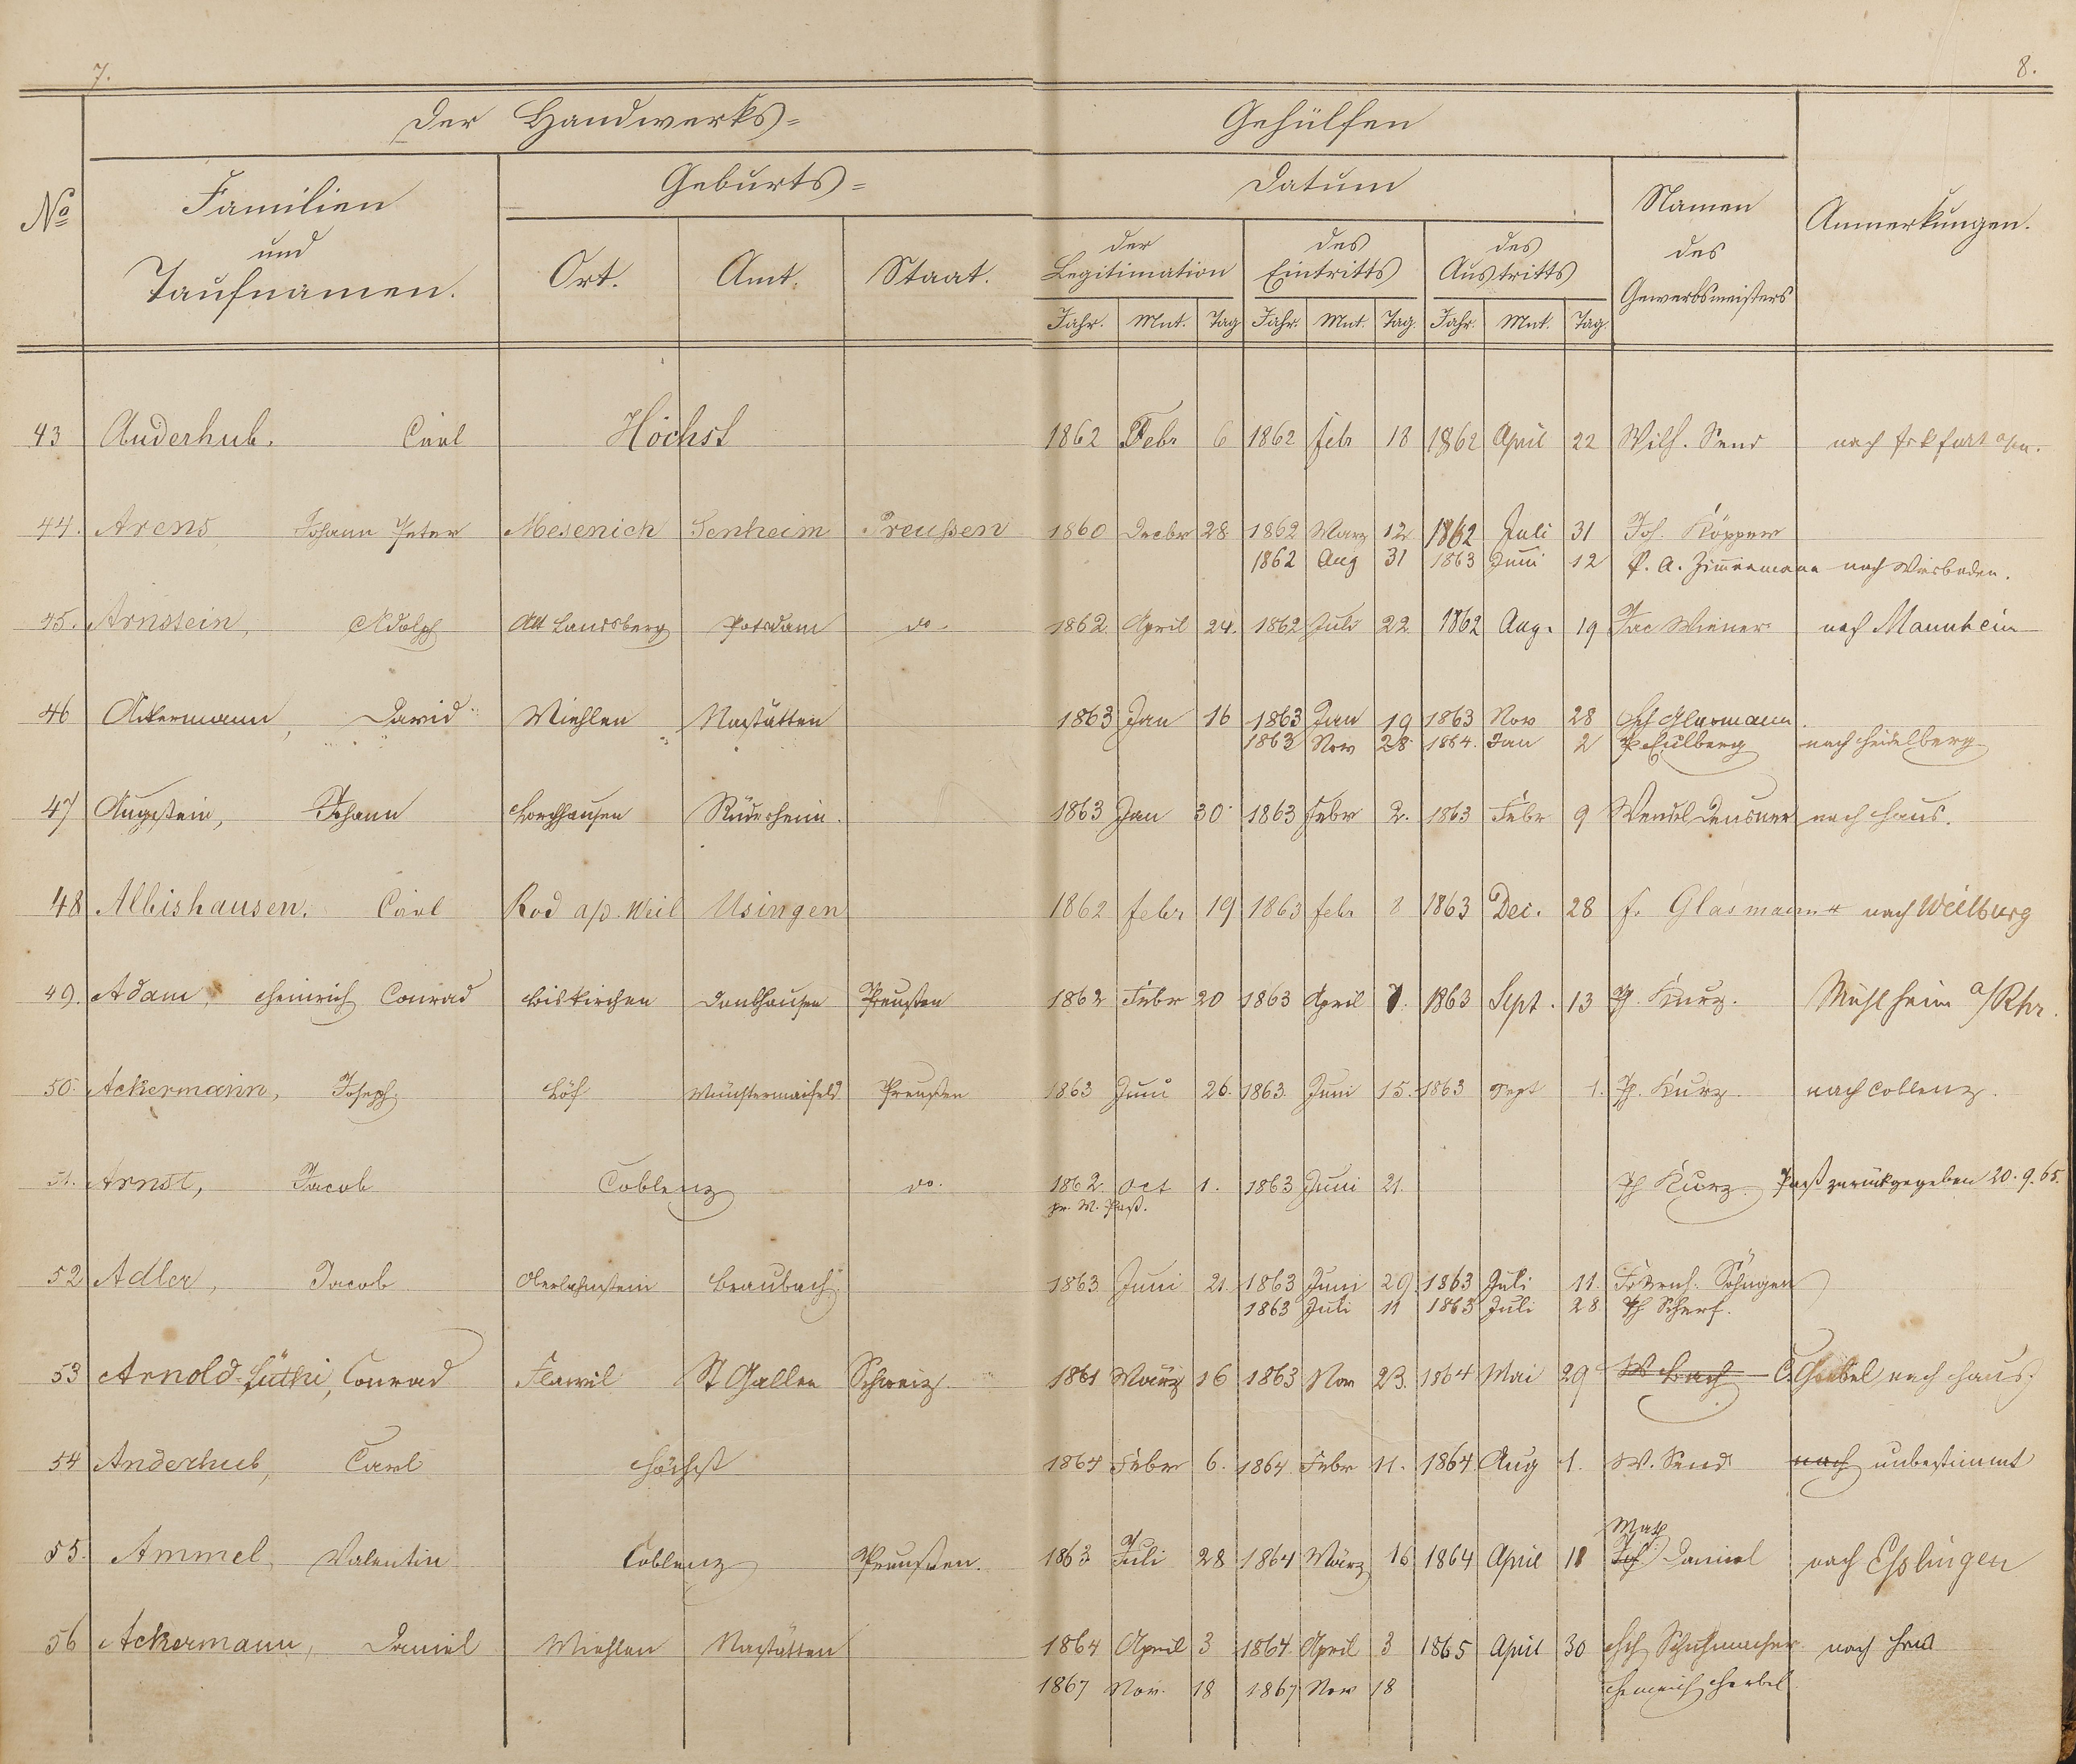 7.
8.
Der Handwerks= Gehülfen
No
Familien
und
Taufnamen.
Geburts=
Ort. Amt. Staat.
Datum
der
Legitimation
des
Eintritts
des
Austritts
Jahr. Mnt. Tag Jahr. Mnt. Tag. Jahr. Mnt. Tag.
Namen
des
Gewerbsmeisters
Anmerkungen.
43 Anderhub. Carl Höchst 1862 Febr 6 1862 febr 18 1862 April 22 Wilh. Send nach Frkfurt a/m.
44. Arens Johann Peter Mesenich Senheim Preußen 1860 Decbr 28 1862 Marz 12 1862 Juli 31 Joh. Köpper
1862 Aug 31 1863 Juni 12 P. A. Zimmermann nach Wiesbaden.
45. Arnstein, Adolph Alt Landsberg Potsdam do. 1862 April 24. 1862 Juli 22 1862 Aug. 19 Jac Wiener nach Mannheim
46 Ackermann, David Miehlen Nastätten 1863 Jan 16 1863 Jan 19 1863 Nov 28 Glasmann
1863 Nov 28 1864. Jan 2 Eulberg nach Heidelberg
47 Augstein, Johann Lorchhausen Rüdesheim. 1863 Jan 30 1863 Febr 2. 1863 Febr 9 Wendel Deusner nach Haus.
48 Albishausen. Carl Rod a/d. Weil Usingen 1862 febr 19 1863 febr 8 1863 Dec. 28 f. Glasmann nach Weilburg
49. Adam, Heinrich Conrad Biskirchen Daubhausen Preußen 1862 Febr 20 1863 April 7. 1863 Sept. 13 Ph. Kurz. Mühlheim a/Rhr.
50. Ackermann, Joseph. Löf Münstermaifeld Preußen 1863 Juni 26. 1863 Juni 15. 1863 Sept 1. Ph. Kurz nach Coblenz.
51. Arnst, Jacob Coblenz do. 1862. Oct 1. 1863 Juni 21. Ph Kurz. Paß zurückgegeben 20.9.65.
pr. W. Paß.
52 Adler, Jacob Oberlahnstein Braubach 1863 Juni 21. 1863 Juni 29. 1863 Juli 11. Friedrich Söhngen
1863 Juli 11 1863 Juli 28. Ph Scherf.
53 Arnold-Lüthi, Conrad Flawil St Gallen Schweiz. 1861 März 16 1863 Nov 23. 1864 Mai 29 W Bach C. Goebel nach Haus.
54 Anderhub, Carl Höchst 1864 Febr 6. 1864. Febr 11. 1864 Aug 1. W. Send nach unbestimmt
55. Ammel, Valentin Coblenz Preußen. 1863 Juli 28 1864 März 16 1864 April 18 Math Daniel nach Eßlingen
56 Ackermann, Daniel Miehlen Nastätten 1864 April 3 1864. April 3 1865 April 30 Hch Schuhmacher nach Hrs
1867 Nov. 18 1867 Nov 18 Heinrich Herbel